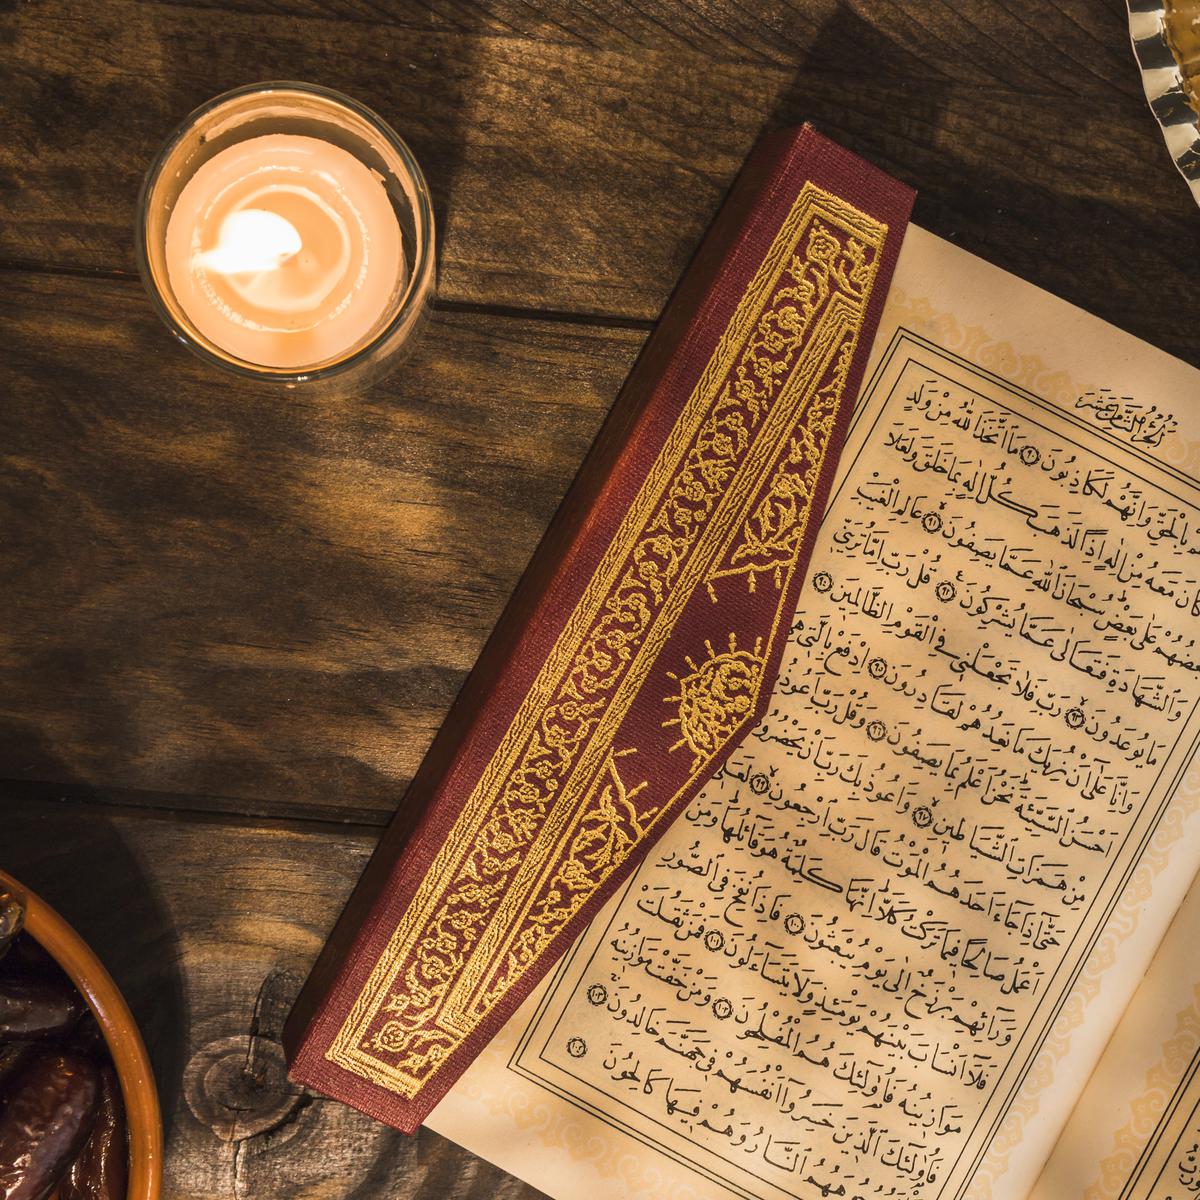 الجزء الثامن عشر
بِالْحَقِّ وَاِنَّهُمْ لَكَاذِبُونَ ٩٠ مَا اتَّخَذَ اللّٰهُ مِنْ وَلَدٍ
كَانَ مَعَهُ مِنْ اِلٰهٍ اِذًا لَذَهَبَ كُلُّ اِلٰهٍ بِمَا خَلَقَ وَلَعَلَا
بَعْضُهُمْ عَلٰى بَعْضٍ سُبْحَانَ اللّٰهِ عَمَّا يَصِفُونَ ٩١ عَالِمِ الْغَيْبِ
وَالشَّهَادَةِ فَتَعَالٰى عَمَّا يُشْرِكُونَ ٩٢ قُلْ رَبِّ اِمَّا تُرِيَنِّى
مَا يُوعَدُونَ ٩٣ رَبِّ فَلَا تَجْعَلْنِى فِى الْقَوْمِ الظَّالِمِينَ ٩٤
وَاِنَّا عَلٰى اَنْ نُرِيَكَ مَا نَعِدُهُمْ لَقَادِرُونَ ٩٥ اِدْفَعْ بِالَّتِى هِىَ
اَحْسَنُ السَّيِّئَةَ نَحْنُ اَعْلَمُ بِمَا يَصِفُونَ ٩٦ وَقُلْ رَبِّ اَعُوذُ
مِنْ هَمَزَاتِ الشَّيَاطِينِ ٩٧ وَاَعُوذُ بِكَ رَبِّ اَنْ يَحْضُرُونِ
حَتّٰى اِذَا جَاءَ اَحَدَهُمُ الْمَوْتُ قَالَ رَبِّ ارْجِعُونِ ٩٩ لَعَلِّى
اَعْمَلُ صَالِحًا فِيمَا تَرَكْتُ كَلَّا اِنَّهَا كَلِمَةٌ هُوَ قَائِلُهَا وَمِنْ
وَرَائِهِمْ بَرْزَخٌ اِلٰى يَوْمِ يُبْعَثُونَ ١٠٠ فَاِذَا نُفِخَ فِى الصُّورِ
فَلَا اَنْسَابَ بَيْنَهُمْ يَوْمَئِذٍ وَلَا يَتَسَاءَلُونَ ١٠١ فَمَنْ ثَقُلَتْ
مَوَازِينُهُ فَاُولٰئِكَ هُمُ الْمُفْلِحُونَ ١٠٢ وَمَنْ خَفَّتْ مَوَازِينُهُ
فَاُولٰئِكَ الَّذِينَ خَسِرُوا اَنْفُسَهُمْ فِى جَهَنَّمَ خَالِدُونَ ١٠٣
النَّارُ وَهُمْ فِيهَا كَالِحُونَ ١٠٤